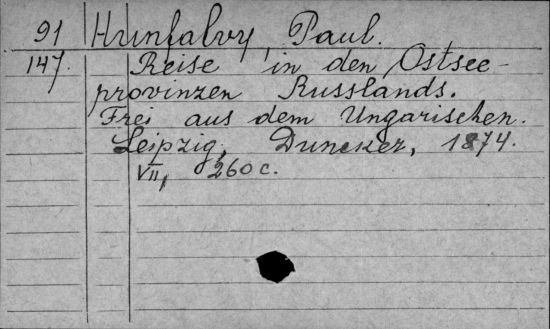 91 Hunfalvy, Paul.
147. Reise in den Ostsee-
provinzen Russlands.
Frei aus dem Ungarischen.
Leipzig, Duncker, 1874.
VII, 260 c.